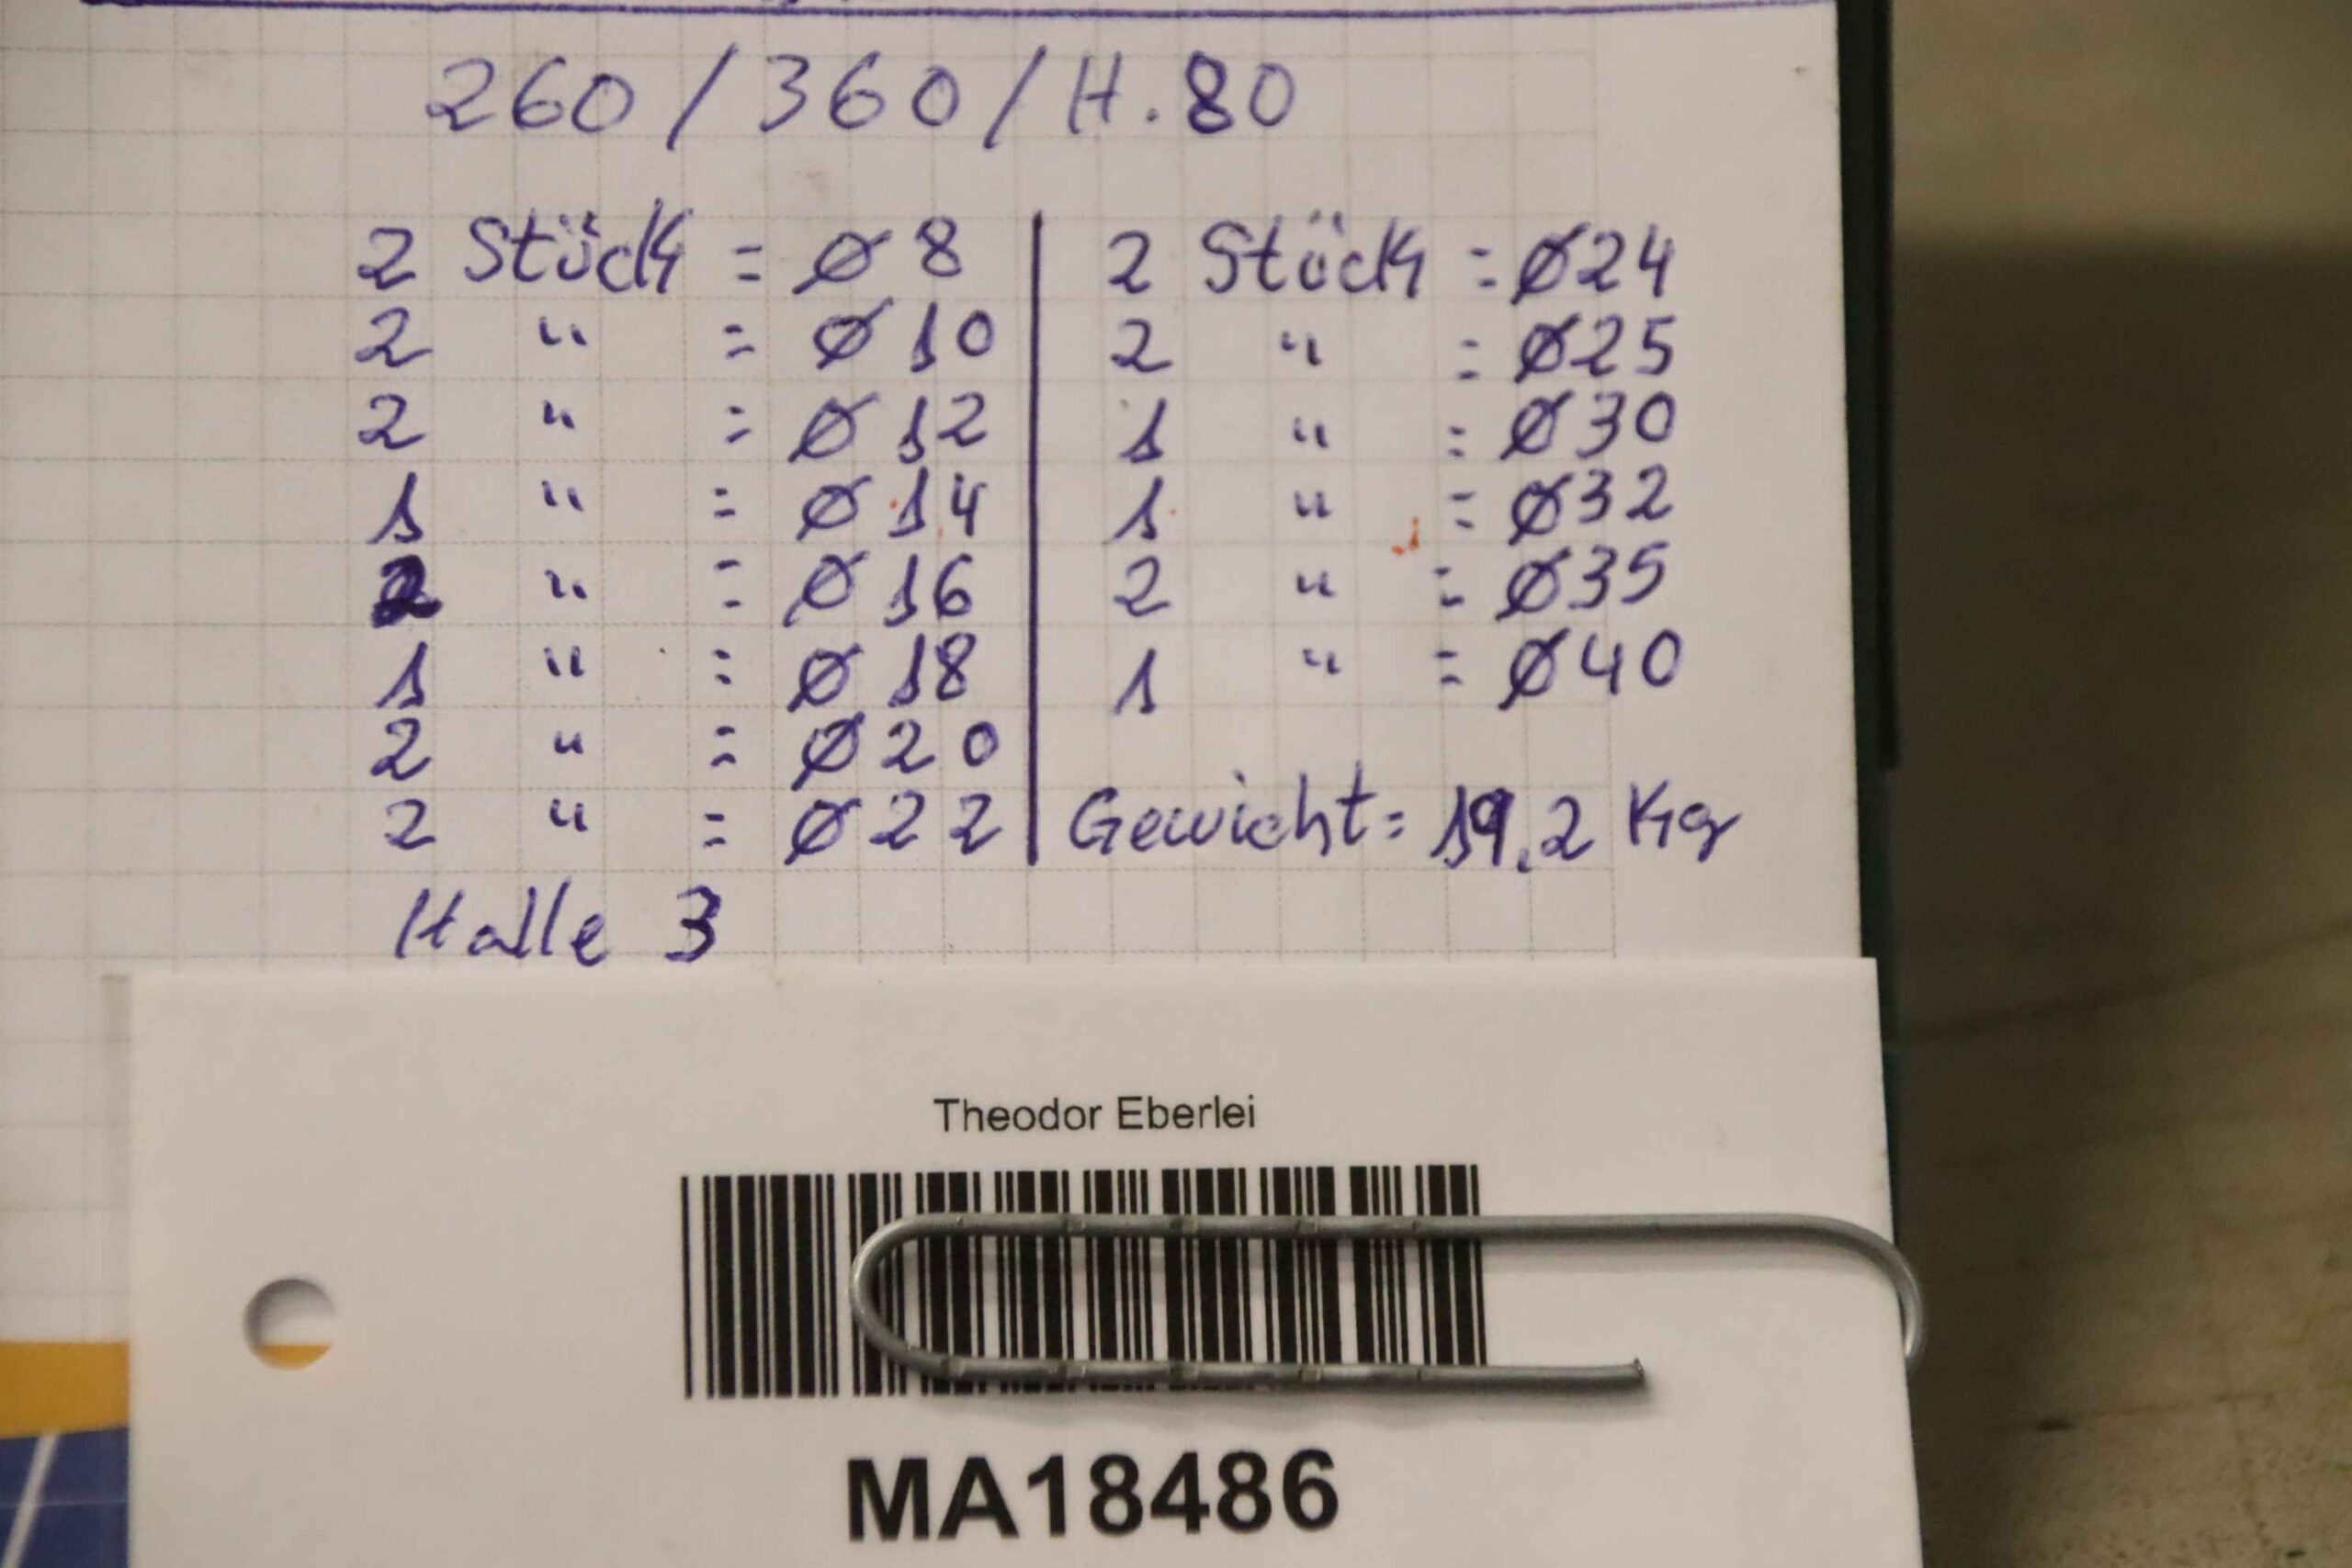 260 / 360 / H. 80
2 Stück = Ø 8
2 " = Ø 10
2 " = Ø 12
1 " = Ø 14
2 " = Ø 16
1 " = Ø 18
2 " = Ø 20
2 " = Ø 22
2 Stück = Ø24
2 " = Ø25
1 " = Ø30
1 " = Ø32
2 " = Ø35
1 " = Ø40
Gewicht = 19,2 Kg
Halle 3
Theodor Eberlei
MA18486